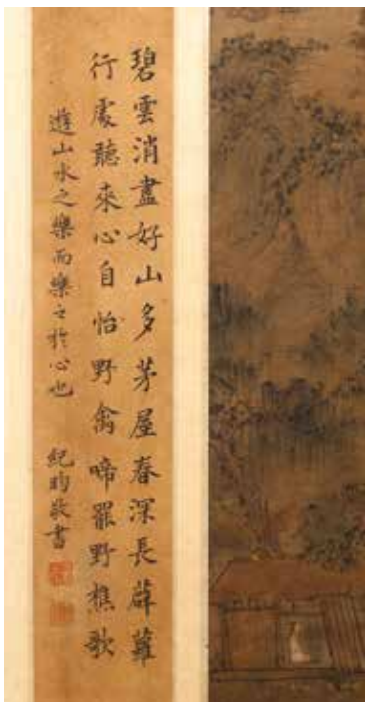 碧雲消盡好山多茅屋春深長薜蘿
行處聽來心自怡野禽啼罷野樵歌
遊山水之樂而樂之於心也 紀昀敬書